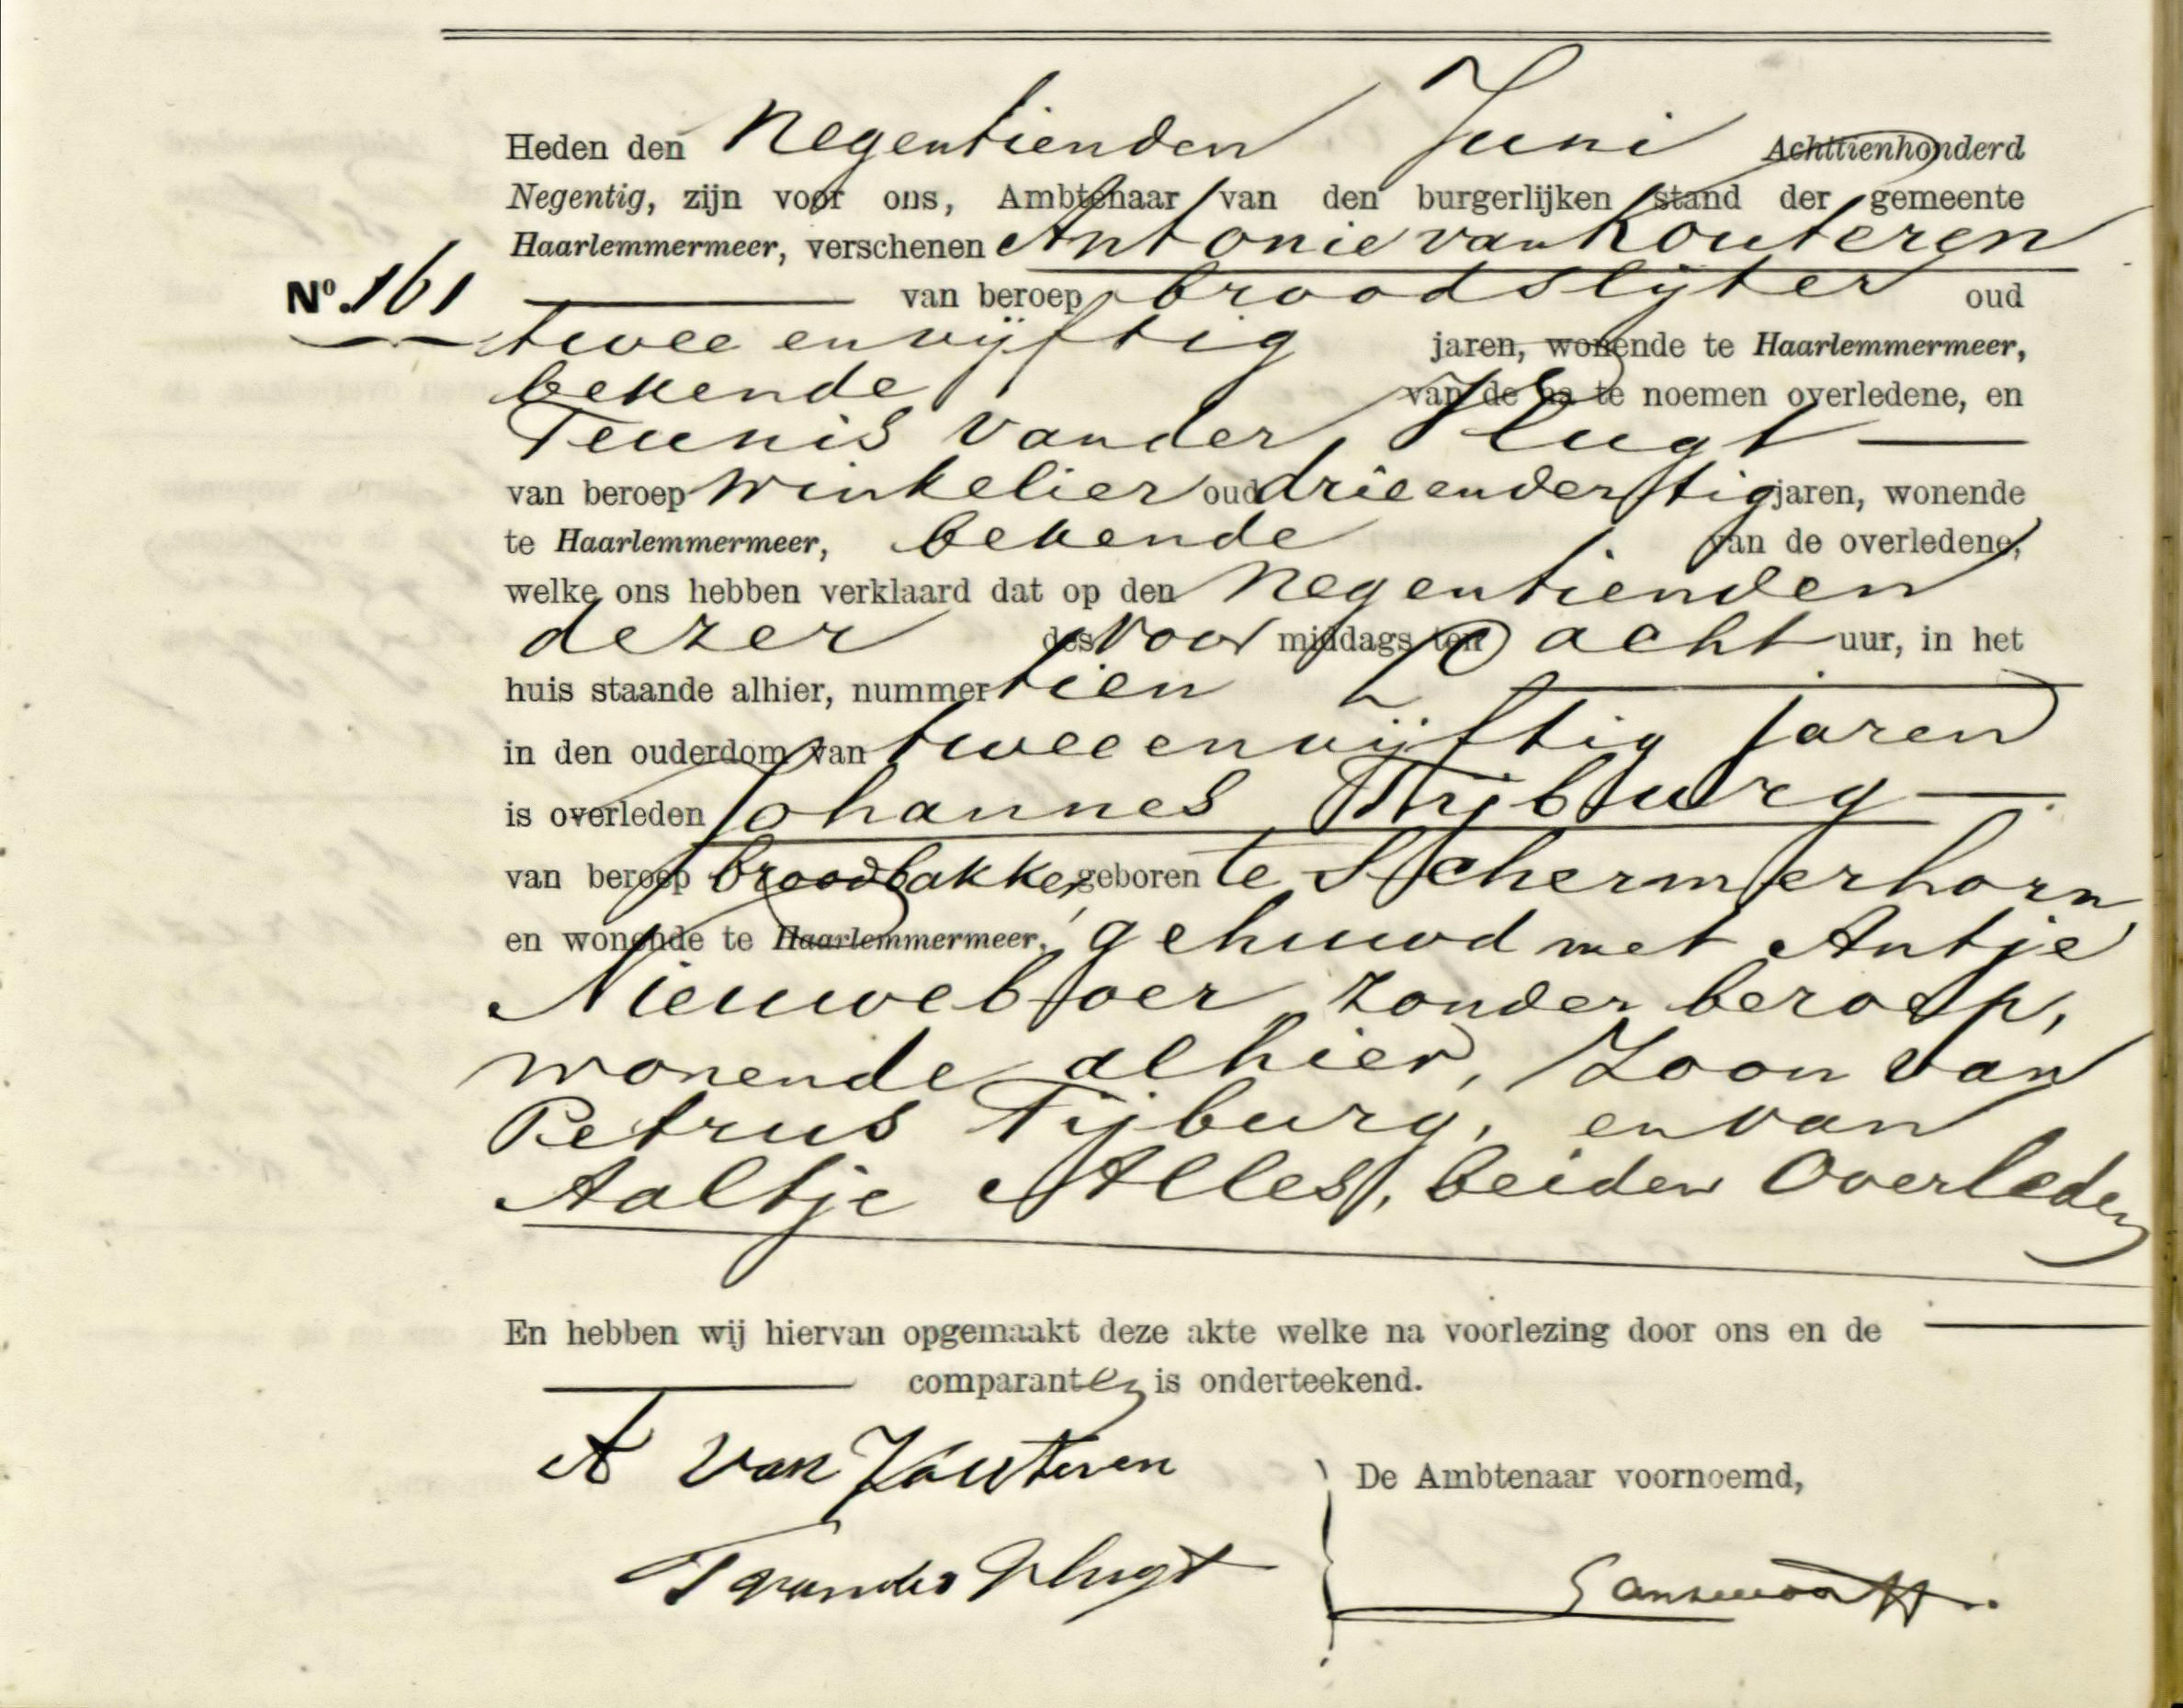 Heden den Negentienden Juni Achttienhonderd
Negentig, zijn voor ons, Ambtenaar van den burgerlijken stand der gemeente
Haarlemmermeer, verschenen Antonie van Kouteren
No. 161 van beroep broodslijter oud
twee en vijftig jaren, wonende te Haarlemmermeer,
bekende van de na te noemen overledene, en
Teunis van der Plugt
van beroep winkelier oud drie en dertig jaren, wonende
te Haarlemmermeer, bekende van de overledene,
welke ons hebben verklaard dat op den negentienden
dezer des voor middags ten acht uur, in het
huis staande alhier, nummer tien
in den ouderdom van twee en vijftig jaren
is overleden Johannes Tijburg
van beroep broodbakker, geboren te Schermerhorn
en wonende te Haarlemmermeer, gehuwd met Antje
Nieuweboer zonder beroep,
wonende alhier, Zoon van
Petrus Tijburg, en van
Aaltje Alles, beiden Overleden
En hebben wij hiervan opgemaakt deze akte welke na voorlezing door ons en de
comparanten is onderteekend.
A van Kouteren
De Ambtenaar voornoemd,
T van der Plugt